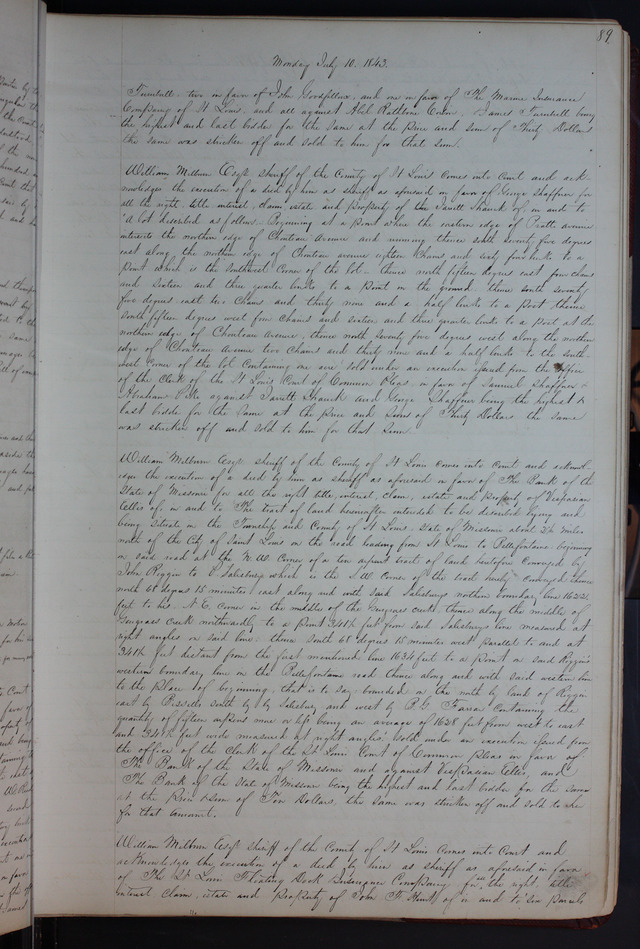 89.
Monday July 10. 1843.
Turnbull two in favor of John and one in favor of The Marine Insurance
Company of St Louis and all against Abel Rathbone James Turnbull being
the highest and last bidder for the same at the price and sum of Thirty Dollars
the same was stricken off and sold to him for that sum.
William Milburn Esqr sheriff of the County of St Louis comes into court and ack-
nowledges the execution of a deed by him as sheriff as aforesaid in favor of George Shaffner for
all the right, title interest, claim, estate and property of of in and to
A lot described as follows. Beginning at a point where the eastern edge of Pratte avenue
intersects the northern edge of Chouteau Avenue and running thence south seventy five degrees
east along the northern edge of Chouteau Avenue eighteen chains and sixty four links to a
point which is the southwest corner of the lot – thence north fifteen degrees east four chains
and sixteen and three quarter links to a point on the ground, thence south seventy
five degrees east two chains and thirty nine and a half links to a post thence
south fifteen degrees west four chains and sixteen and three quarter links to a post at the
northern edge of Chouteau Avenue, thence north seventy five degrees west along the northern
edge of Chouteau Avenue two chains and thirty nine and a half links to the south-
west corner of the lot Containing one acre sold under an execution issued from the office
of the Clerk of the St Louis Court of Common Pleas in favor of Samuel Shaffner &
Abraham against and George Shaffner being the highest &
last bidder for the same at the price and sum of Thirty Dollars the same
was stricken off and sold to him for that sum.
William Milburn Esqr sheriff of the County of St Louis comes into court and acknowl-
edges the execution of a deed by him as sheriff as aforesaid in favor of The Bank of the
State of Missouri for all the right title, interest, claim, estate and property of Vespasian
Ellis of, in and to The tract of land hereinafter intended to be described lying and
being situate in the Township and County of St Louis State of Missouri about 2½ miles
north of the City of Saint Louis on the road leading from St Louis to Bellefontaine – beginning
on said road at the N. W. Corner of a ten arpent tract of land heretofore conveyed by
John Riggin to Salisbury which is the S. W. corner of the tract hereby conveyed thence
north 68 degrees 15 minutes east along and with said Salisburys northern boundary line 1622
feet to his N. E. corner in the middle of the creek, thence along the middle of
Creek northwardly to a point 341 ft from said Salisburys line measured at
right angles on said line; thence South 68 degrees 15 minutes west parallel to and at
341 ft distant from the first mentioned line 1634 feet to a point on said Riggins
western boundary line on the Bellefontaine road thence along and with said western line
to the place of beginning, that is to say – bounded on the north by land of Riggin
east by south by Salisbury and west by Farrar Containing the
quantity of fifteen arpens more or less being an average of 1628 feet from west to east
and 341 ft feet wide measured at right angles. sold under an execution issued from
the office of the Clerk of the St Louis Court of Common Pleas in favor of
The Bank of the State of Missouri and against Vespasian Ellis, and
The Bank of the State of Missouri being the highest and last bidder for the same
at the price & sum of Ten Dollars, the same was stricken off and sold to
for that amount.
William Milburn Esqr sheriff of the County of St Louis comes into Court and
acknowledges the execution of a deed by him as sheriff as aforesaid in favor
of The St Louis Floating Dock Insurance Company for all the right, title
interest, claim, estate and property of John F. Hunt of in and to Six parcels